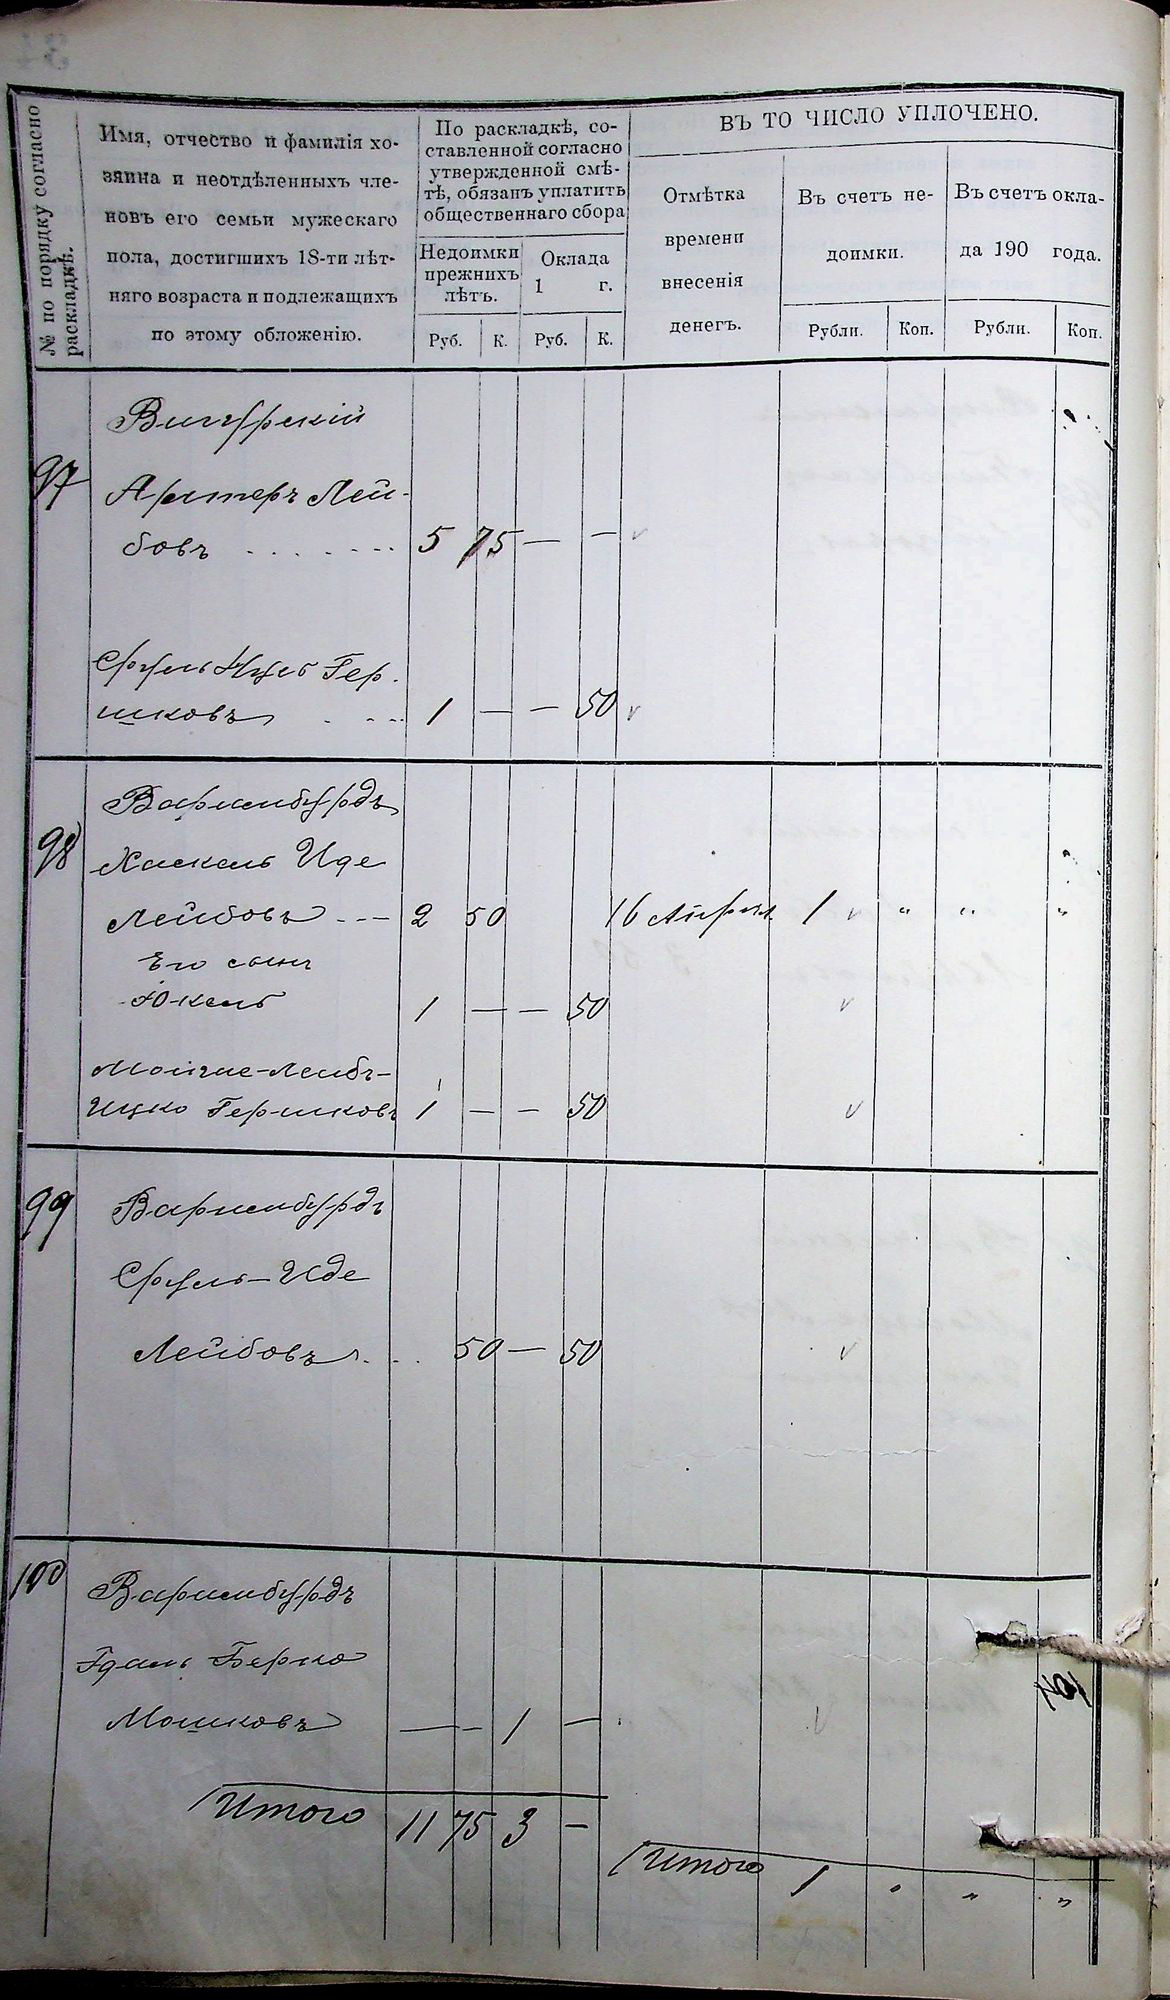 № по порядку согласно
раскладкѣ.
Имя, отчество и фамилія хо-
зяина и неотдѣленныхъ чле-
новъ его семьи мужескаго
пола, достигшихъ 18-ти лѣт-
няго возраста и подлежащихъ
по этому обложенію.
По раскладкѣ, со-
ставленной согласно
утвержденной смѣ-
тѣ, обязанъ уплатить
общественнаго сбора
Недоимки
прежнихъ
лѣтъ.
Оклада
1 г.
Руб. К. Руб. К.
ВЪ ТО ЧИСЛО УПЛОЧЕНО.
Отмѣтка
времени
внесенія
денегъ.
Въ счетъ не-
доимки.
Въ счетъ окла-
да 190 года.
Рубли. Коп. Рубли. Коп.
97
Лей-
бовъ 5 75 — —
Сруль Гер-
шковъ 1 — — 50
98
Варшбурдъ
Хаскель Иде
Лейбовъ 2 50 16 1 " " "
Его сынъ
Юкель 1 — — 50
Мойше-Лейбъ-
Ицко Гершковъ 1 — — 50
99 Варшбурдъ
Сруль-Иде
Лейбовъ 50 — 50
100 Варшбурдъ
Берко
Мошковъ — — 1 —
Итого 11 75 3 —
Итого 1 " " "